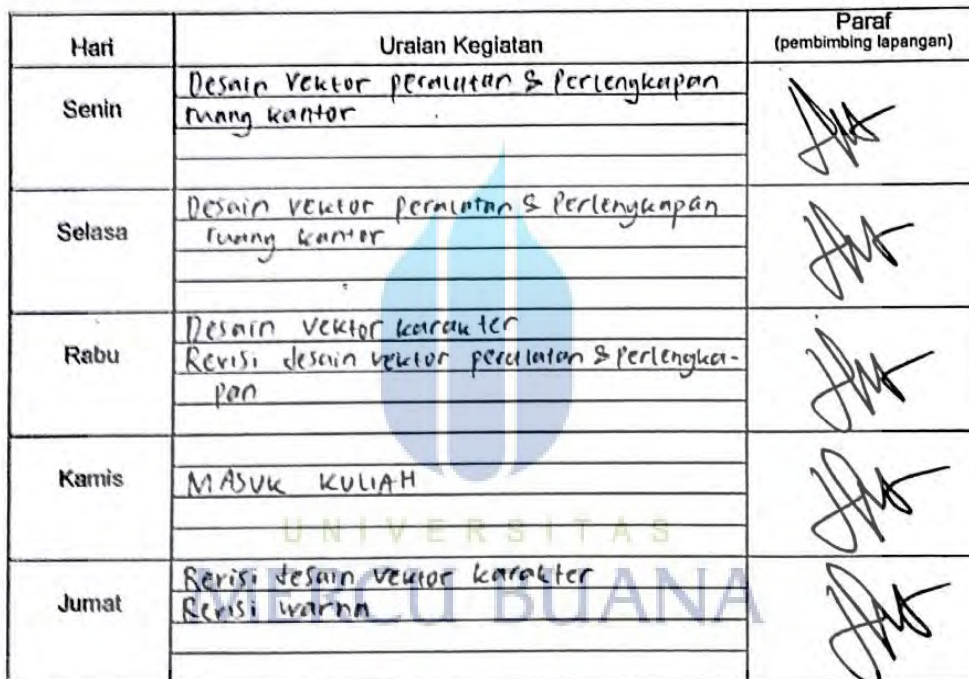 Hari Uraian Kegiatan Paraf
(pembimbing lapangan)
Senin
Desain vektor peralatan & Perlengkapan
ruang kantor
Selasa
Desain vektor peralatan & Perlengkapan
ruang kantor
Rabu
Desain vektor karakter
Revisi desain vektor peralatan & Perlengka-
pan
Kamis
MASUK KULIAH
UNIVERSITAS
MERCU BUANA
Jumat
Revisi desain vektor karakter
Revisi warna